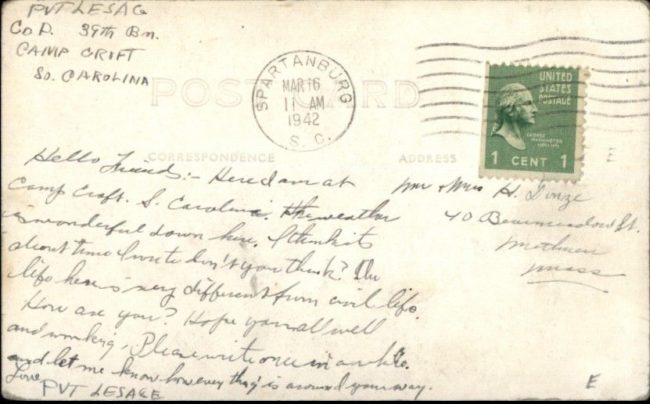 PVT LESAG
Co D. 39th Bn.
CAMP CROFT
SO. CAROLINA
POST CARD
SPARTANBURG
MAR 16
11 AM
1942
S. C.
UNITED
STATES
POSTAGE
GEORGE
WASHINGTON
1 CENT 1
CORRESPONDENCE
ADDRESS
Hello Friends:- Here I am at
Camp Croft. S. Carolina. The weather
is wonderful down here. I think its
about time I write don't you think? The
life here is very different from civil life.
How are you? Hope you all well
and working, Please write once in a while.
and let me know how everthing is around your way.
Love
PVT LESAGE
Mr & Mrs H.
40 St.
Methuen
Mass
E
E